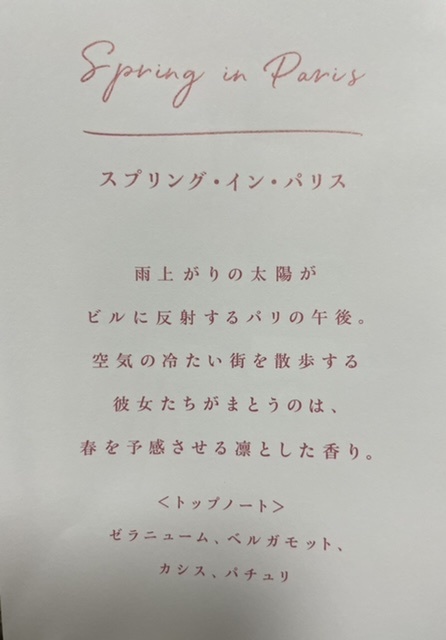 Spring in Paris
スプリング・イン・パリス
雨上がりの太陽が
ビルに反射するパリの午後。
空気の冷たい街を散歩する
彼女たちがまとうのは、
春を予感させる凛とした香り。
＜トップノート＞
ゼラニューム、ベルガモット、
カシス、パチュリ